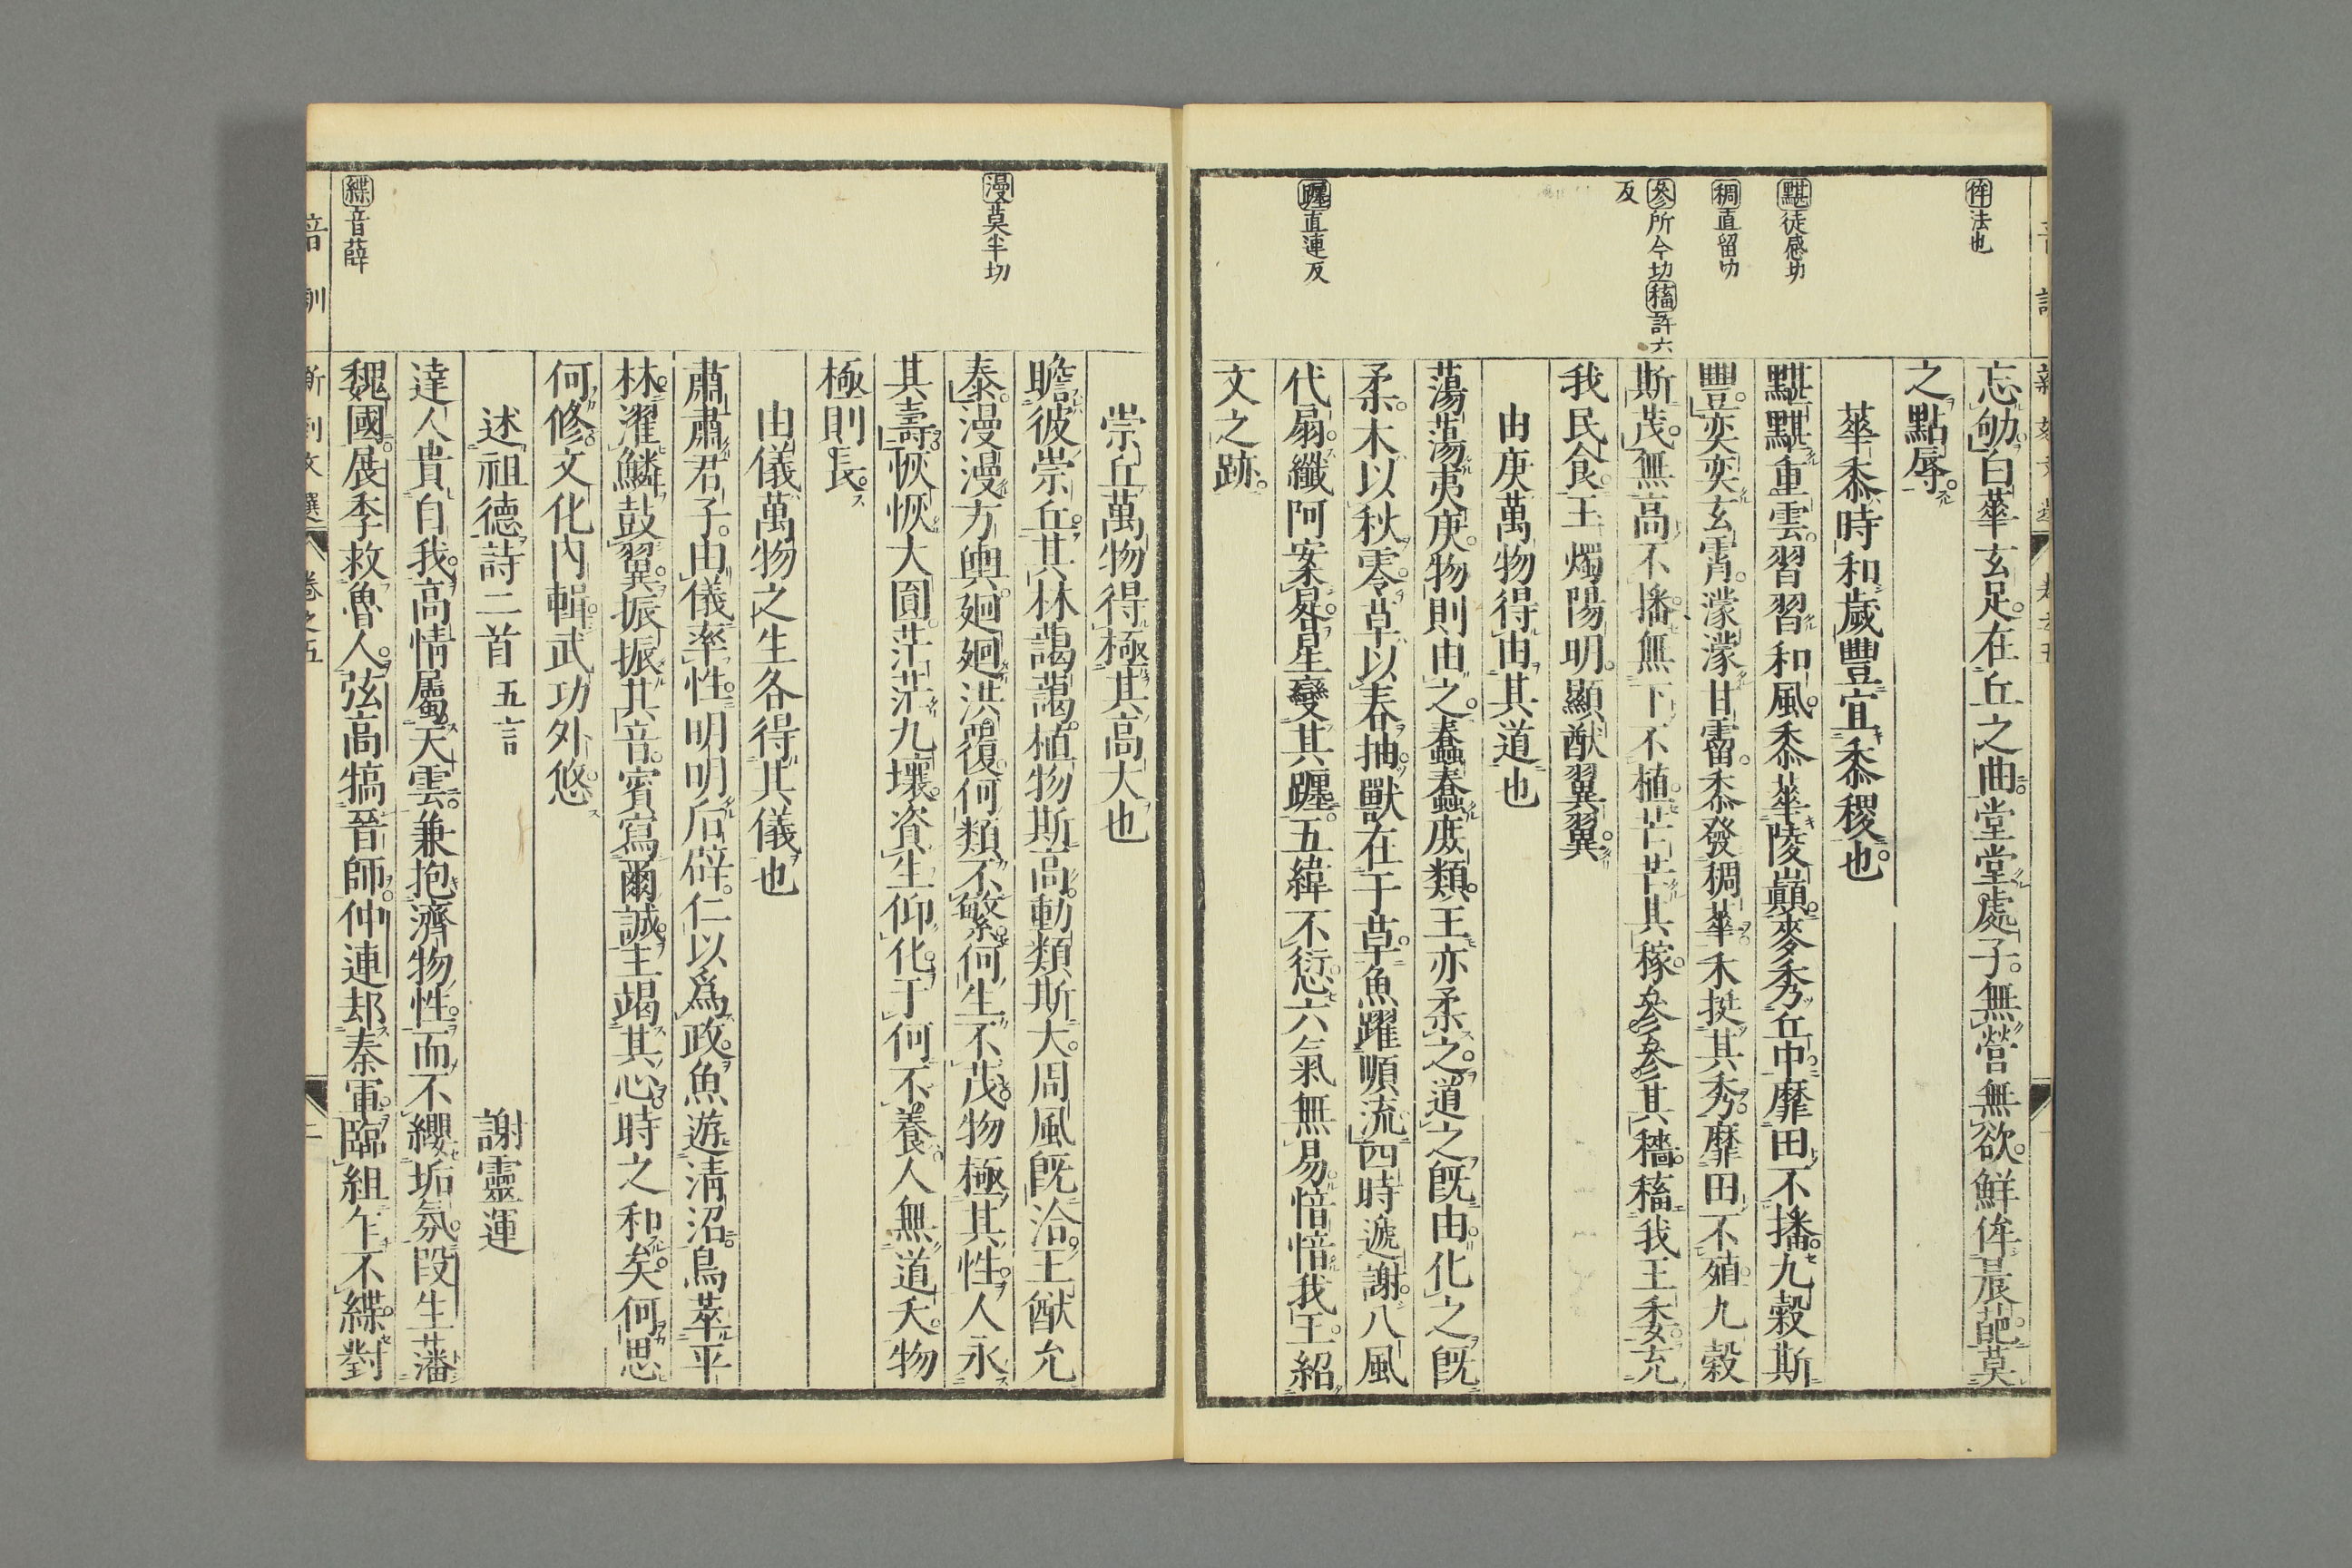 侔法也
黮徒感切
稠直留切
參所今切稸許六
反
躔直連反
忘劬白華玄足在丘之曲堂堂處子無營無欲鮮侔晨葩莫
之點辱
華黍時和歲豐宜黍稷也
黮黮重雲習習和風黍華陵巔麥秀丘中靡田不播九穀斯
豐奕奕玄霄濛濛甘霤黍發稠華禾挺其秀靡田不殖九穀
斯茂無高不播無下不植芒芒其稼參參其穡稸我王委充
我民食玉燭陽明顯猷翼翼
由庚萬物得由其道也
蕩蕩夷庚物則由之蠢蠢庶類王亦柔之道之旣由化之旣
柔木以秋零草以春抽獸在于草魚躍順流四時遞謝八風
代扇纖阿案晷星變其躔五緯不愆六氣無易愔愔我王紹
文之跡
漫莫半切
緤音薛
崇丘萬物得極其高大也
瞻彼崇丘其林藹藹植物斯高動類斯大周風旣洽王猷允
泰漫漫方輿廻廻洪覆何類不繁何生不茂物極其性人永
其壽恢恢大圓茫茫九壤資生仰化于何不養人無道夭物
極則長
由儀萬物之生各得其儀也
肅肅君子由儀率性明明后辟仁以爲政魚遊淸沼鳥萃平
林濯鱗鼓翼振振其音賓寫爾誠主竭其心時之和矣何思
何修文化內輯武功外悠
述祖德詩二首 五言 謝靈運
達人貴自我高情屬天雲兼抱濟物性而不纓垢氛段生藩
魏國展季救魯人弦高犒晉師仲連却秦軍臨組乍不緤對